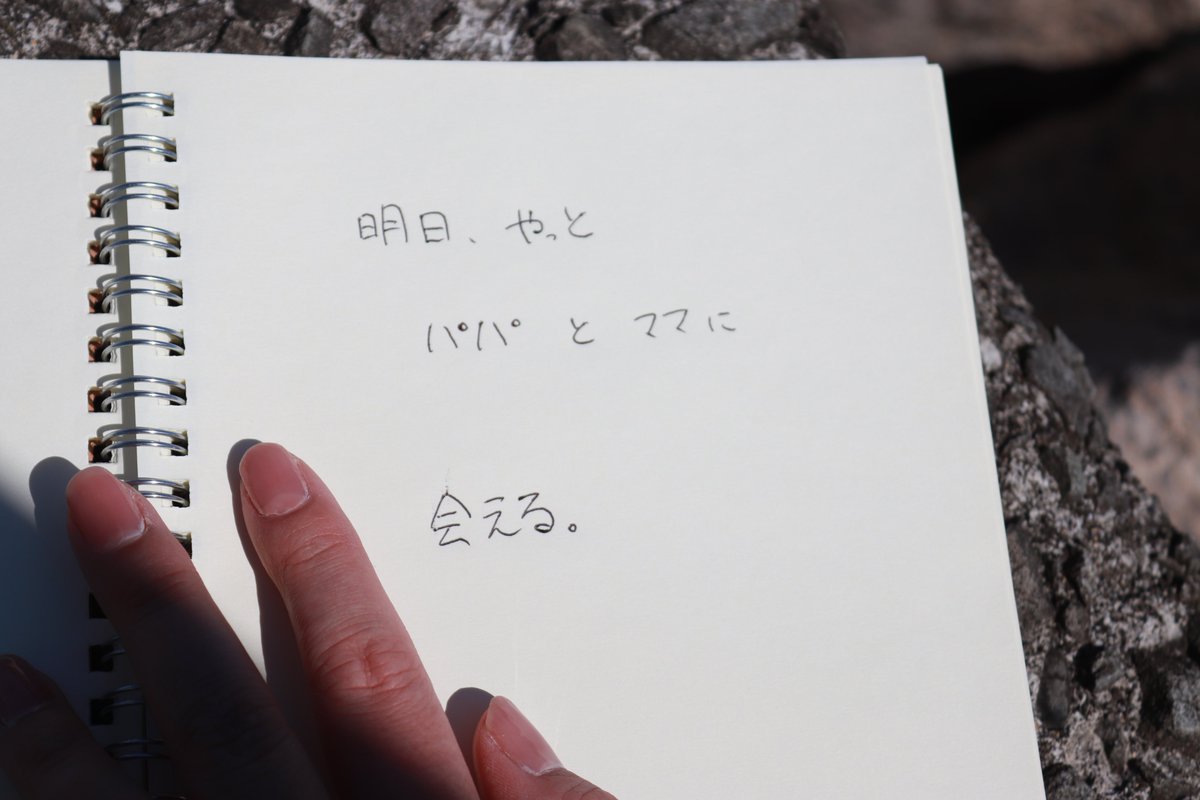 明日、やっと
パパ と ママに
会える。